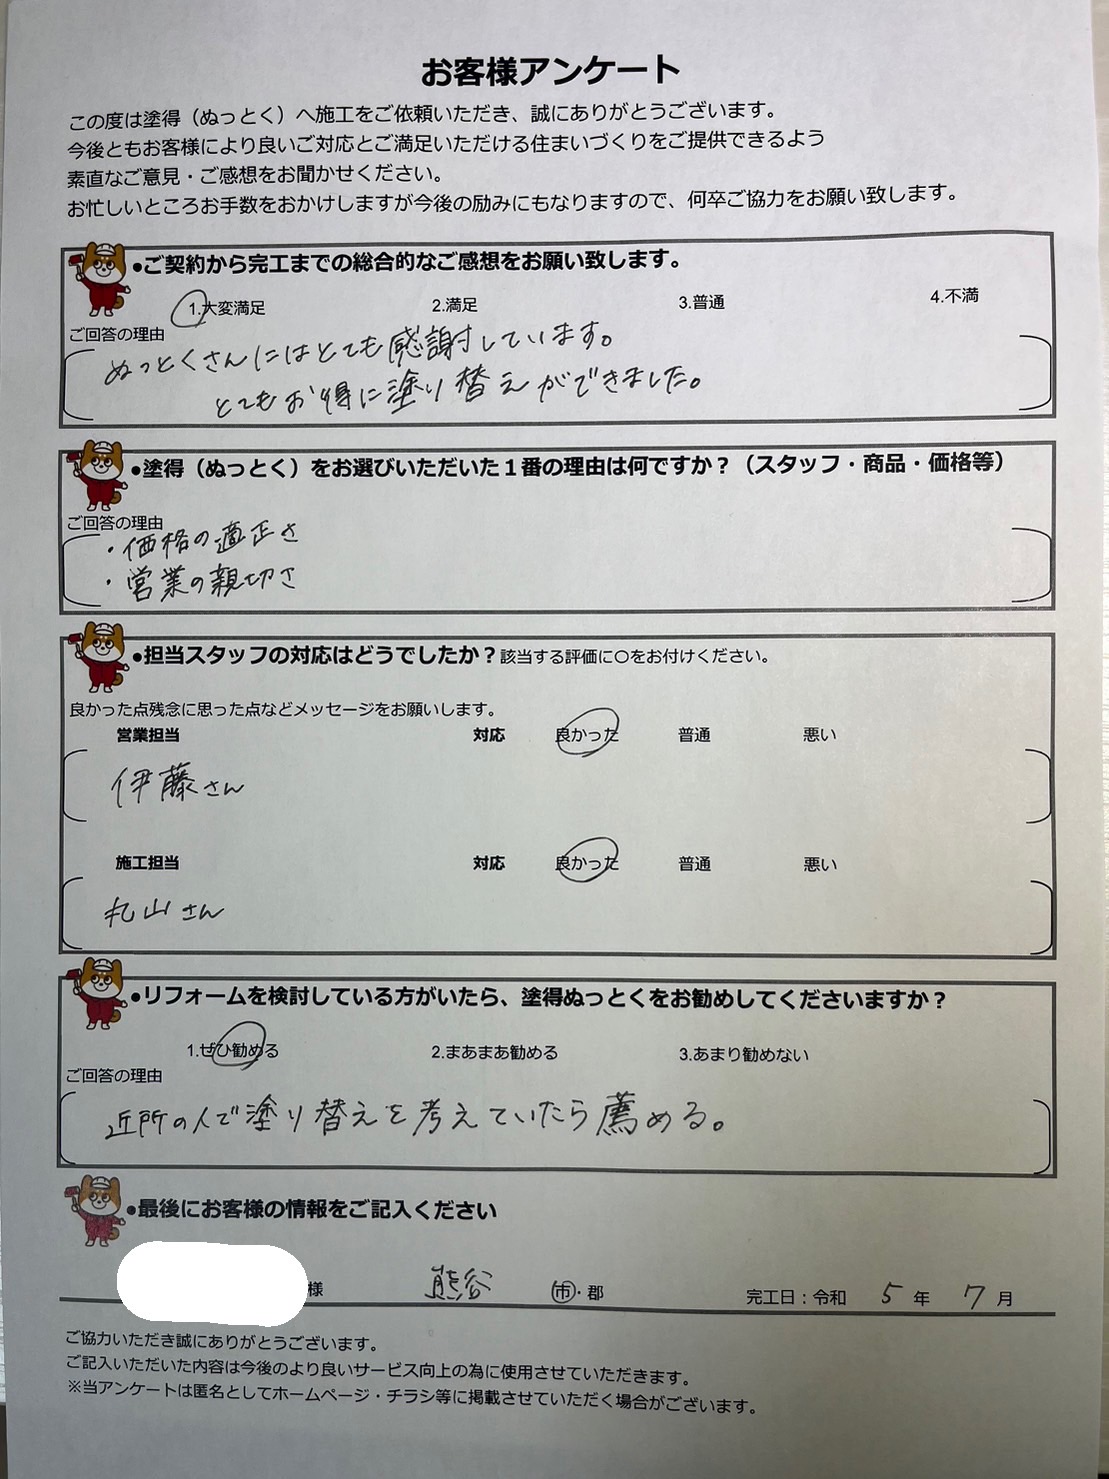 お客様アンケート
この度は塗得（ぬっとく）へ施工をご依頼いただき、誠にありがとうございます。
今後ともお客様により良いご対応とご満足いただける住まいづくりをご提供できるよう
素直なご意見・ご感想をお聞かせください。
お忙しいところお手数をおかけしますが今後の励みにもなりますので、何卒ご協力をお願い致します。
●ご契約から完工までの総合的なご感想をお願い致します。
1.大変満足 2.満足 3.普通 4.不満
ご回答の理由
ぬっとくさんにはとても感謝しています。
とてもお得に塗り替えができました。
●塗得（ぬっとく）をお選びいただいた１番の理由は何ですか？（スタッフ・商品・価格等）
ご回答の理由
・価格の適正さ
・営業の親切さ
●担当スタッフの対応はどうでしたか？該当する評価に○をお付けください。
良かった点残念に思った点などメッセージをお願いします。
営業担当 対応 良かった 普通 悪い
伊藤さん
施工担当 対応 良かった 普通 悪い
丸山さん
●リフォームを検討している方がいたら、塗得ぬっとくをお勧めしてくださいますか？
1.ぜひ勧める 2.まあまあ勧める 3.あまり勧めない
ご回答の理由
近所の人で塗り替えを考えていたら薦める。
●最後にお客様の情報をご記入ください
様 熊谷 市・郡 完工日：令和 5 年 7 月
ご協力いただき誠にありがとうございます。
ご記入いただいた内容は今後のより良いサービス向上の為に使用させていただきます。
※当アンケートは匿名としてホームページ・チラシ等に掲載させていただく場合がございます。